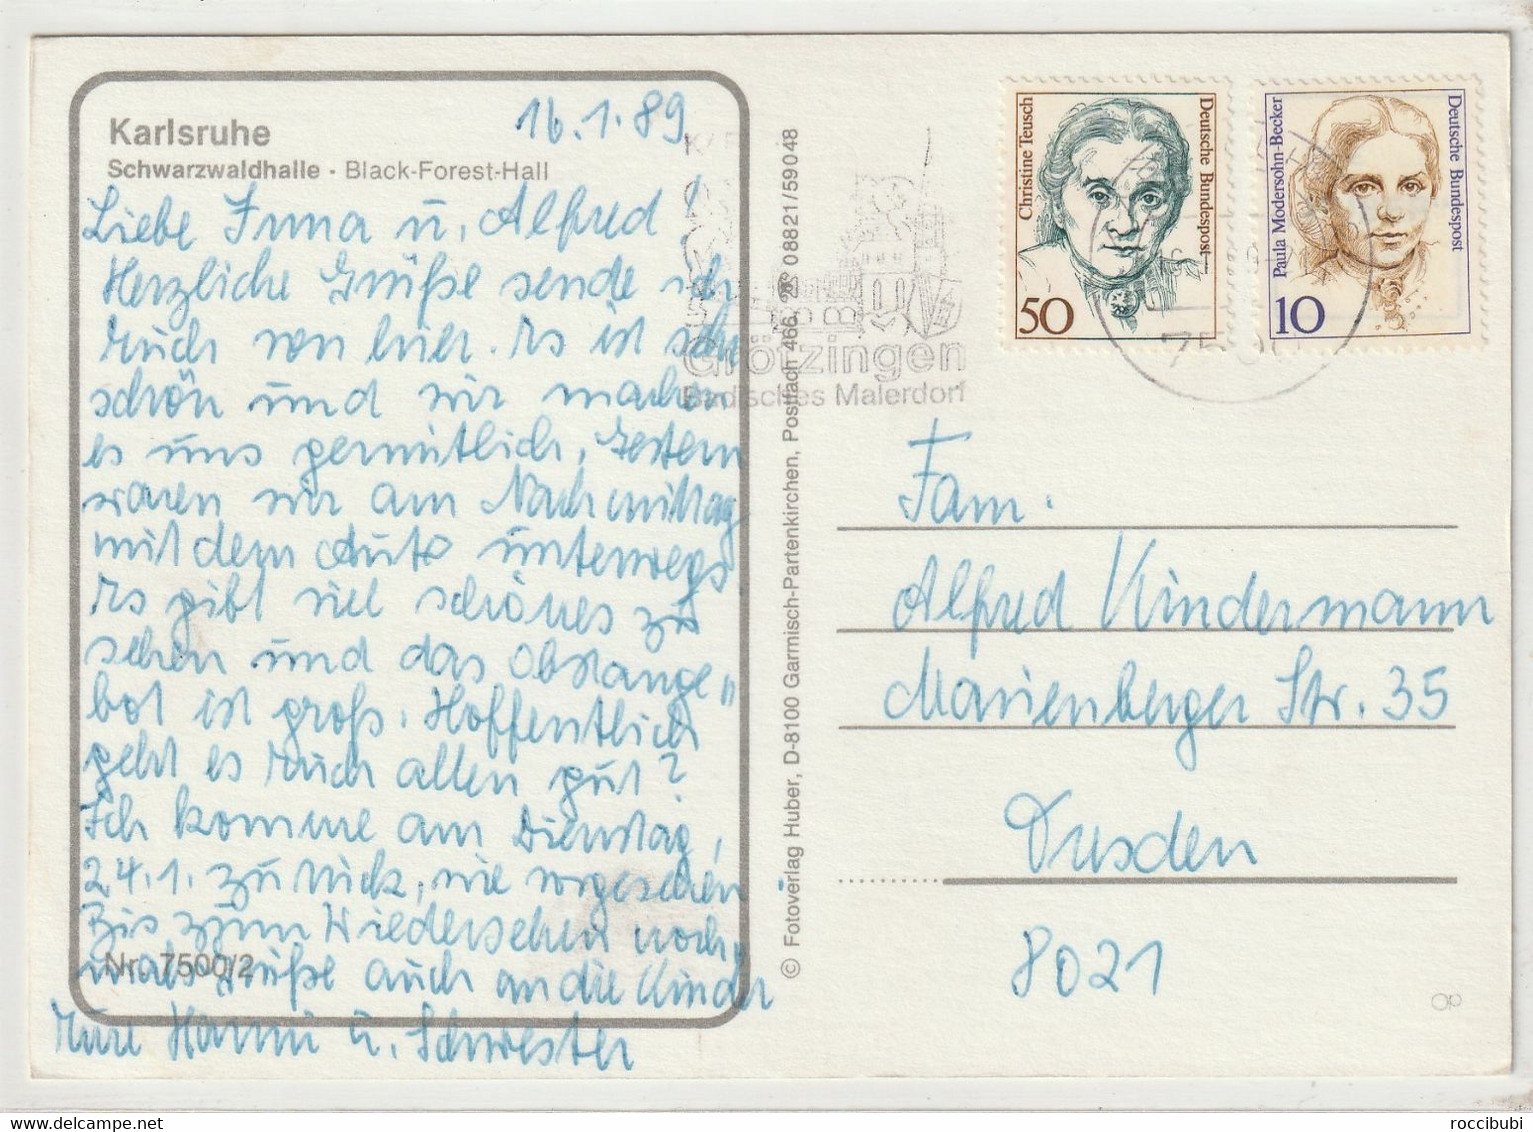 Karlsruhe
Schwarzwaldhalle · Black-Forest-Hall
16.1.89
Liebe Irma u. Alfred!
Herzliche Grüße sende ich
Euch von hier. Es ist sehr
schön und wir machen
es uns gemütlich, Gestern
waren wir am Nachmittag
mit dem Auto unterwegs
Es gibt viel schönes zu
sehen und das Obstange„
bot ist groß. Hoffentlich
geht es Euch allen gut?
Ich komme am Dienstag,
24.1. zurück, wie vorgesehen.
Bis zum Wiedersehen noch„
mals Grüße auch an die Kinder
Eure Hanni u. Schwester
Nr. 7500/2
© Fotoverlag Huber, D-8100 Garmisch-Partenkirchen, Postfach 466, 08821/59048
Grötzingen
Badisches Malerdorf
Christine Teusch
Deutsche Bundespost
50
Paula Modersohn-Becker
Deutsche Bundespost
10
Fam.
Alfred Kindermann
Marienberger Str. 35
Dresden
8021
delcampe.net
roccibubi